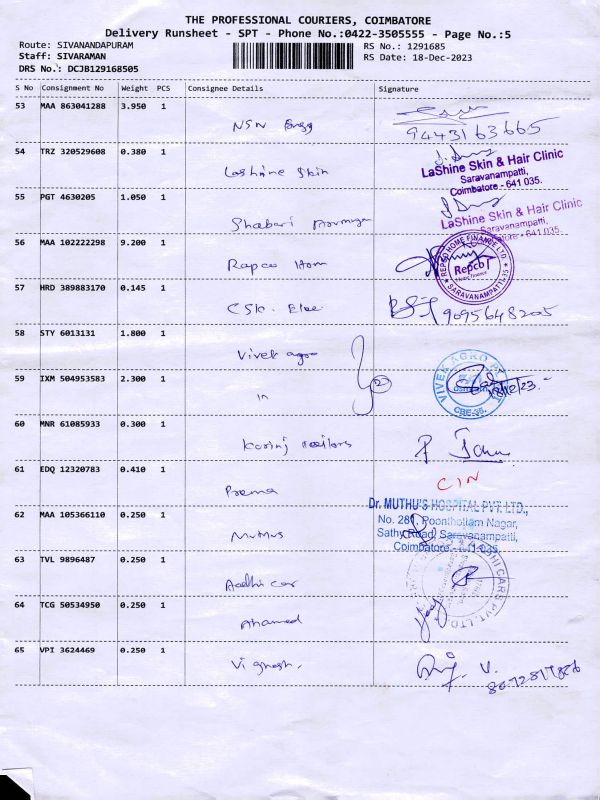 THE PROFESSIONAL COURIERS, COIMBATORE
Delivery Runsheet - SPT - Phone No.:0422-3505555 - Page No.:5
Route: SIVANANDAPURAM
RS No.: 1291685
Staff: SIVARAMAN
RS Date: 18-Dec-2023
DRS No.: DCJB129168505
S No Consignment No Weight PCS Consignee Details Signature
53 MAA 863041288 3.950 1
NSN
9443163665
54 TRZ 320529608 0.380 1
Lashine Skin
LaShine Skin & Hair Clinic
Saravanampatti,
Coimbatore - 641 035.
55 PGT 4630205 1.050 1
Shabari
LaShine Skin & Hair Clinic
Saravanampatti,
Coimbatore - 641 035.
56 MAA 102222298 9.200 1
Repco Hom
REPCO HOME FINANCE LTD
Repco
Home Finance
SARAVANAMPATTI-35
57 HRD 389883170 0.145 1
CSK. Elec
9095648205
58 STY 6013131 1.800 1
Vivek agro
59 IXM 504953583 2.300 1
in
2
VIVEK AGRO
CBE-35.
18/12/23.
60 MNR 61085933 0.300 1
61 EDQ 12320783 0.410 1
Prema
CIN
62 MAA 105366110 0.250 1
Muthus
Dr. MUTHU'S HOSPITAL PVT. LTD.,
No. 289, Poonthottam Nagar,
Sathy Road, Saravanampatti,
Coimbatore - 641 035.
63 TVL 9896487 0.250 1
Aadhi car
CARS PVT. LTD.
64 TCG 50534950 0.250 1
Ahamed
65 VPI 3624469 0.250 1
Vignesh.
V.